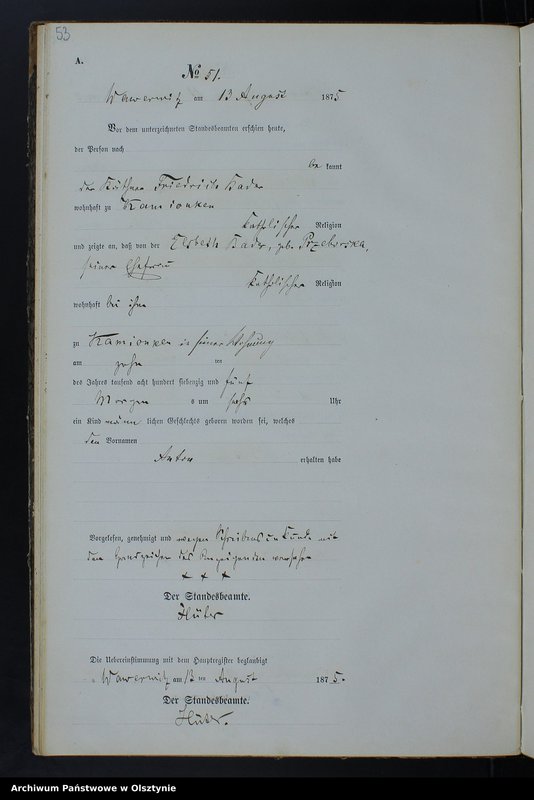 53
A.
No 51.
Wawerwitz am 13 August 1875
Vor dem unterzeichneten Standesbeamten erschien heute,
der Person nach
be kannt
der Käthner Friedrich Kader
wohnhaft zu Kamionken
katholischer Religion
und zeigte an, daß von der Elsbeth Kader, geb.
seiner Ehefrau
katholischer Religion
wohnhaft bei ihm
zu Kamionken in seiner Wohnung
am zehn ten
des Jahres tausend acht hundert siebenzig und fünf
Morgen s um sechs Uhr
ein Kind männ lichen Geschlechts geboren worden sei, welches
den Vornamen
Anton erhalten habe
Vorgelesen, genehmigt und wegen Schreibensunkunde mit
dem Handzeichen des Anzeigenden versehen
+ + +
Der Standesbeamte.
Hüter
Die Uebereinstimmung mit dem Hauptregister beglaubigt
Wawerwitz am 13 ten August 1875.
Der Standesbeamte.
Hüter.
Archiwum Państwowe w Olsztynie